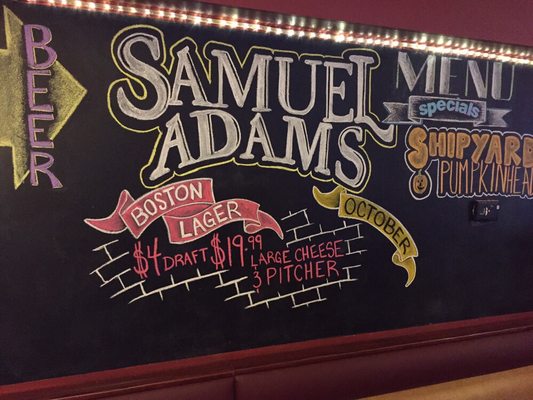 BEER
SAMUEL
ADAMS
BOSTON
LAGER
OCTOBER
$4 DRAFT $19.99 LARGE CHEESE
& PITCHER
MENU
specials
SHIPYARD
PUMPKINHEAD